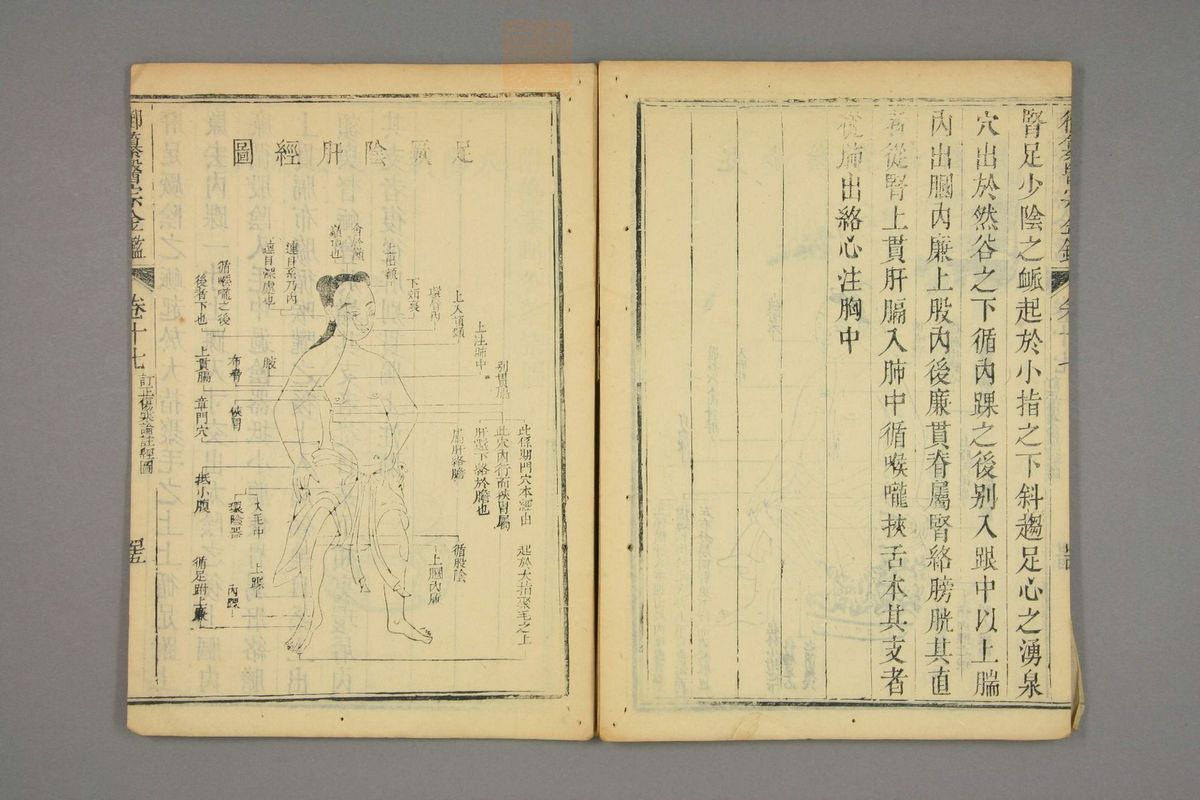 腎足少陰之脈起於小指之下斜趨足心之湧泉
穴出於然谷之下循內踝之後別入跟中以上腨
內出膕內廉上股內後廉貫脊屬腎絡膀胱其直
者從腎上貫肝膈入肺中循喉嚨挾舌本其支者
從肺出絡心注胸中
足厥陰肝經圖
上出額
會於巔
巔頂也
連目系乃內
連目深處也
循喉嚨之後
後者下也
下頰裏
環唇內
上入頏顙
上注肺中
別貫膈
上貫膈
布脅
章門穴
挾胃
此係期門穴本經由
此穴內行而挾胃屬
肝還下絡於膽也
屬肝絡膽
抵小腹
入毛中
環陰器
循股陰
上膕內廉
上踝
內踝
循足跗上廉
起於大指聚毛之上
御纂醫宗金鑑
卷十七
訂正傷寒論註經圖